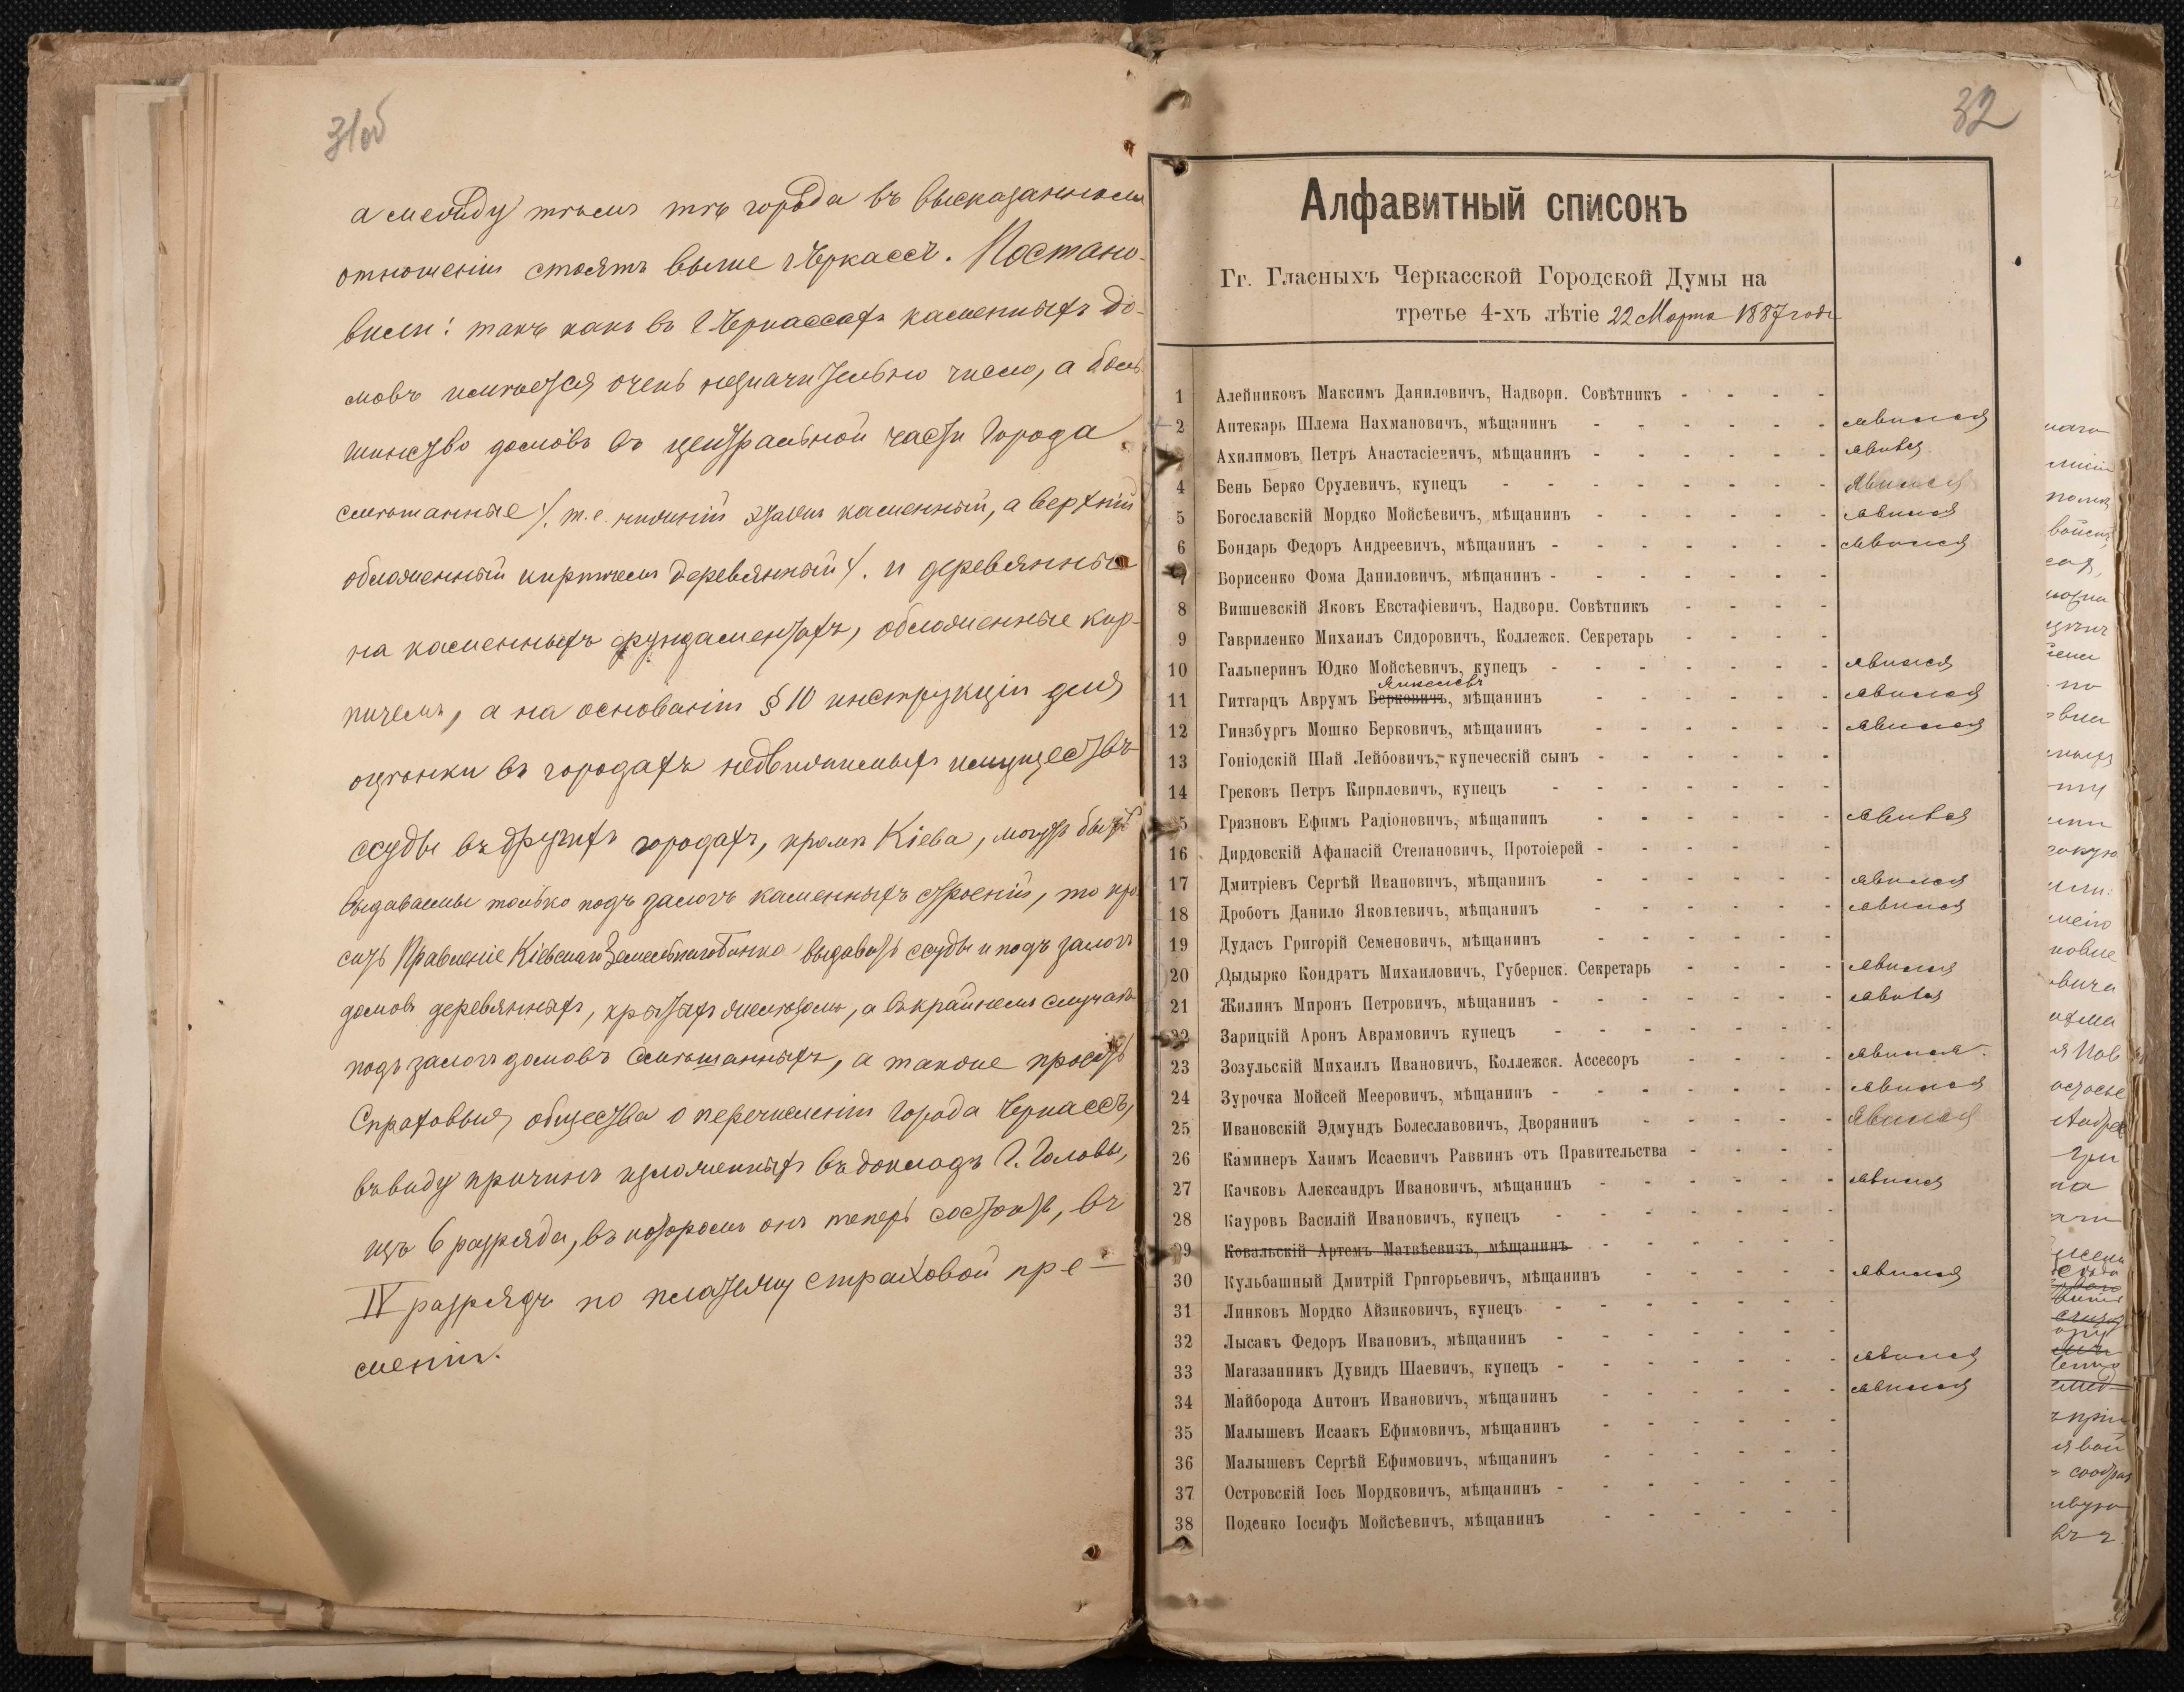 31об
а между тѣмъ тѣ города въ высказанномъ
отношеніи стоятъ выше г Черкассъ. Постано-
вили: такъ какъ въ г Черкассахъ каменныхъ до-
мовъ имѣется очень незначительно число, а боль
шинство домовъ въ центральной части города
смѣшанные /. т.е. нижній этажъ каменный, а верхній
обложенный кирпичемъ деревянный /. и деревянные
на каменныхъ фундаментахъ, обложенные кир-
пичемъ, а на основаніи § 10 инструкціи для
оцѣнки въ городахъ недвижимыхъ имуществъ
ссуды въ другихъ городахъ, кромѣ Кіева, могутъ быть
выдаваемы только подъ залогъ каменныхъ строеній, то про
сить Правленіе Кіевскаго Земельнаго Банка выдавать ссуды и подъ залогъ
домовъ деревянныхъ, крытыхъ желѣзомъ, а въ крайнемъ случаѣ
подъ залогъ домовъ смѣшанныхъ, а также просить
Страховыя общества о перечисленіи города Черкассъ,
въ виду причинъ изложенныхъ въ докладѣ Г. Головы,
изъ 6 разряда, въ которомъ онъ теперь состоитъ, въ
IV разрядъ по платежу страховой пре-
меніи.
32
Алфавитный списокъ
Гг. Гласныхъ Черкасской Городской Думы на
третье 4-хъ лѣтіе 22 Марта 1887 года
1 Алейниковъ Максимъ Даниловичъ, Надворн. Совѣтникъ - - - -
2 Аптекарь Шлема Нахмановичъ, мѣщанинъ - - - - - - явился
Ахилимовъ Петръ Анастасіевичъ, мѣщанинъ - - - - - - явився
4 Бень Берко Срулевичъ, купецъ - - - - - - - - явился
5 Богославскій Мордко Мойсѣевичъ, мѣщанинъ - - - - - - явился
6 Бондарь Федоръ Андреевичъ, мѣщанинъ - - - - - - - явился
7 Борисенко Фома Даниловичъ, мѣщанинъ - - - - - - -
8 Вишневскій Яковъ Евстафіевичъ, Надворн. Совѣтникъ - - - -
9 Гавриленко Михаилъ Сидоровичъ, Коллежск. Секретарь - - - -
10 Гальперинъ Юдко Мойсѣевичъ, купецъ - - - - - - - явился
11 Гитгарцъ Аврумъ Берковичъ, мѣщанинъ - - - - - - явился
12 Гинзбургъ Мошко Берковичъ, мѣщанинъ - - - - - - явился
13 Гоніодскій Шай Лейбовичъ, купеческій сынъ - - - - - -
14 Грековъ Петръ Кириловичъ, купецъ - - - - - - -
15 Грязновъ Ефимъ Радіоновичъ, мѣщанинъ - - - - - - явився
16 Дирдовскій Афанасій Степановичъ, Протоіерей - - - - - -
17 Дмитріевъ Сергѣй Ивановичъ, мѣщанинъ - - - - - - явился
18 Дроботъ Данило Яковлевичъ, мѣщанинъ - - - - - - явился
19 Дудасъ Григорій Семеновичъ, мѣщанинъ - - - - - -
20 Дыдырко Кондратъ Михаиловичъ, Губернск. Секретарь - - - - явился
21 Жилинъ Миронъ Петровичъ, мѣщанинъ - - - - - - - явився
22 Зарицкій Аронъ Аврамовичъ купецъ - - - - - - -
23 Зозульскій Михаилъ Ивановичъ, Коллежск. Ассесоръ - - - - явился
24 Зурочка Мойсей Мееровичъ, мѣщанинъ - - - - - - - явился
25 Ивановскій Эдмундъ Болеславовичъ, Дворянинъ - - - - - явился
26 Каминеръ Хаимъ Исаевичъ Раввинъ отъ Правительства - - - -
27 Качковъ Александръ Ивановичъ, мѣщанинъ - - - - - - явился
28 Кауровъ Василій Ивановичъ, купецъ - - - - - - -
29 Ковальскій Артемъ Матвѣевичъ, мѣщанинъ - - - - - -
30 Кульбашный Дмитрій Григорьевичъ, мѣщанинъ - - - - - явился
31 Линковъ Мордко Айзиковичъ, купецъ - - - - - - -
32 Лысакъ Федоръ Ивановиъ, мѣщанинъ - - - - - - -
33 Магазанникъ Дувидъ Шаевичъ, купецъ - - - - - - - явился
34 Майборода Антонъ Ивановичъ, мѣщанинъ - - - - - - явился
35 Малышевъ Исаакъ Ефимовичъ, мѣщанинъ - - - - - -
36 Малышевъ Сергѣй Ефимовичъ, мѣщанинъ - - - - - -
37 Островскій Іось Мордковичъ, мѣщанинъ - - - - - - -
38 Поденко Іосифъ Мойсѣевичъ, мѣщанинъ - - - - - -